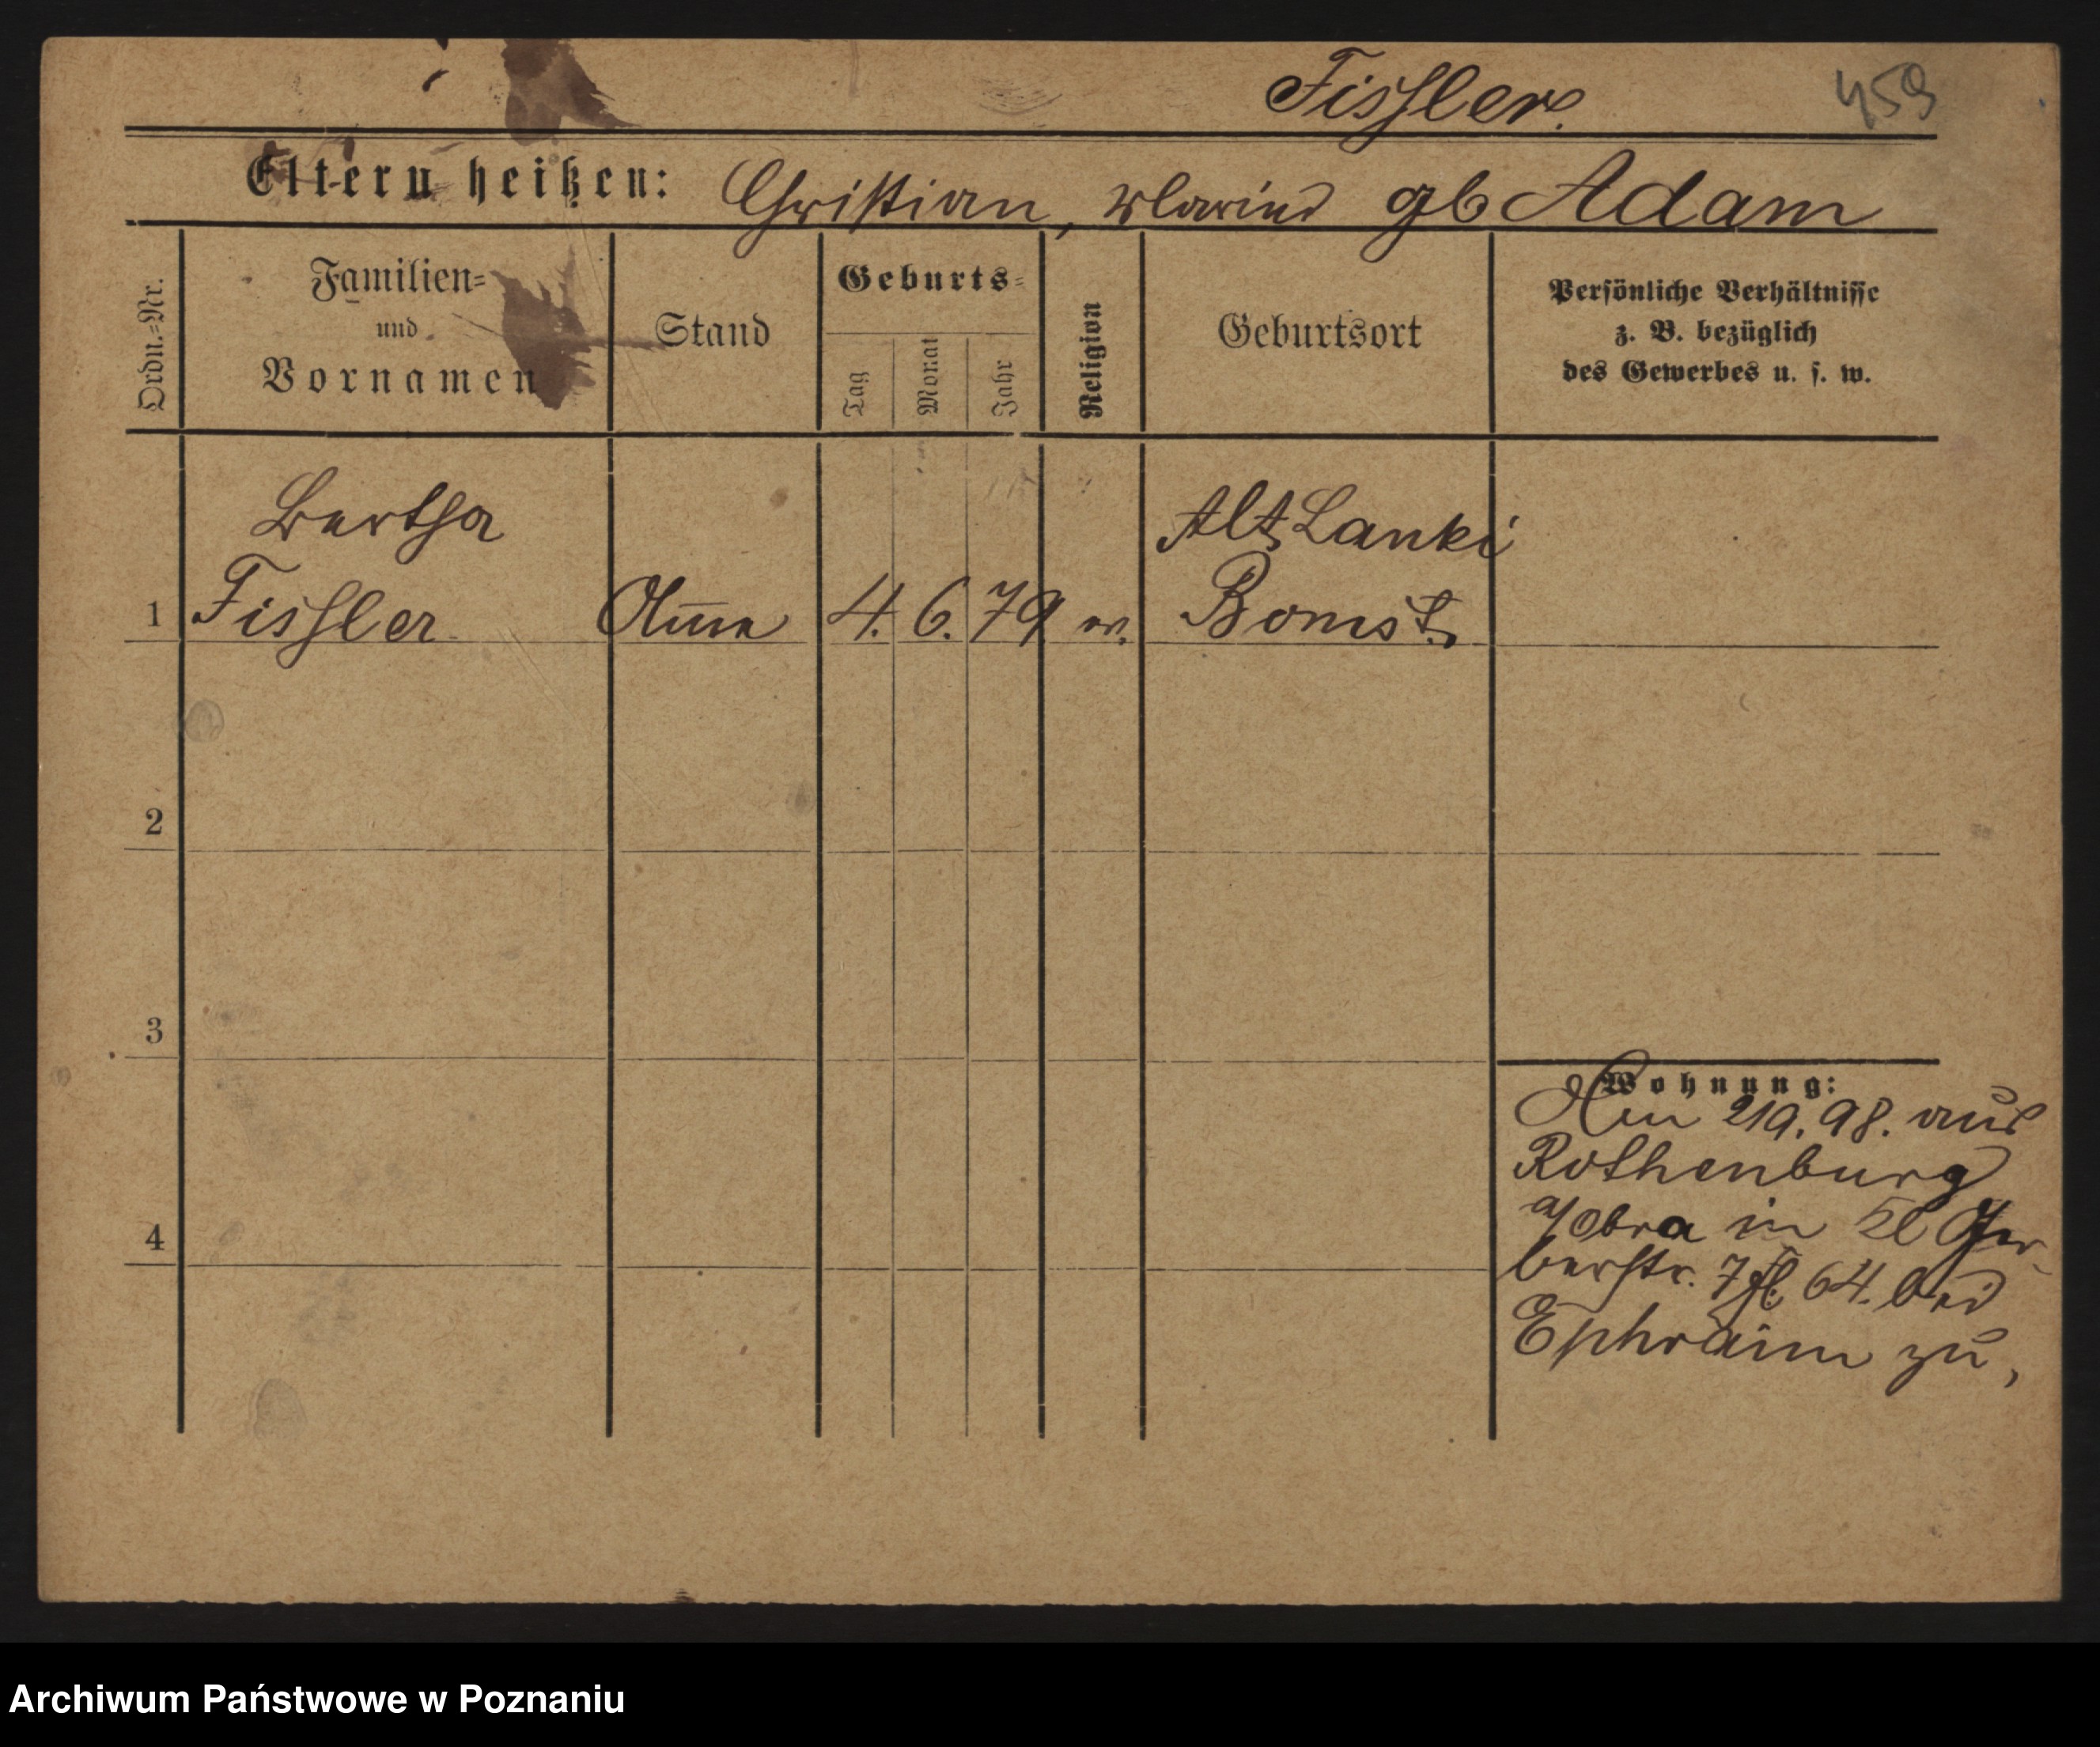 Fissler.
459
Eltern heißen: Christian, Marie gb Adam
Ordn.=Nr.
Familien=
und
Vornamen
Stand
Geburts=
Tag
Monat
Jahr
Religion
Geburtsort
Persönliche Verhältnisse
z. B. bezüglich
des Gewerbes u. s. w.
Bertha
Alt Lanki
1 Fissler Amme 4. 6. 79 ev. Bomst.
2
3
Wohnung:
Am 2/9. 98. aus
Rothenburg
a/Obra in Kl Ger-
4
berstr. 7 64. bei
Ephraim zu,
Archiwum Państwowe w Poznaniu